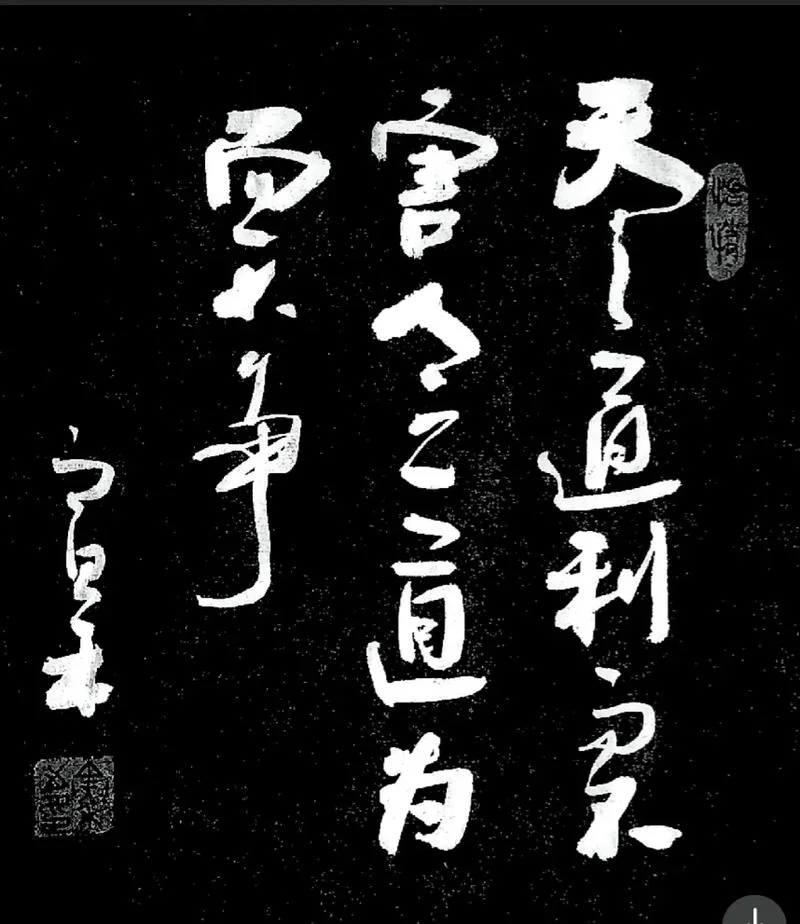 天之道利而不
害人之道为
而不争